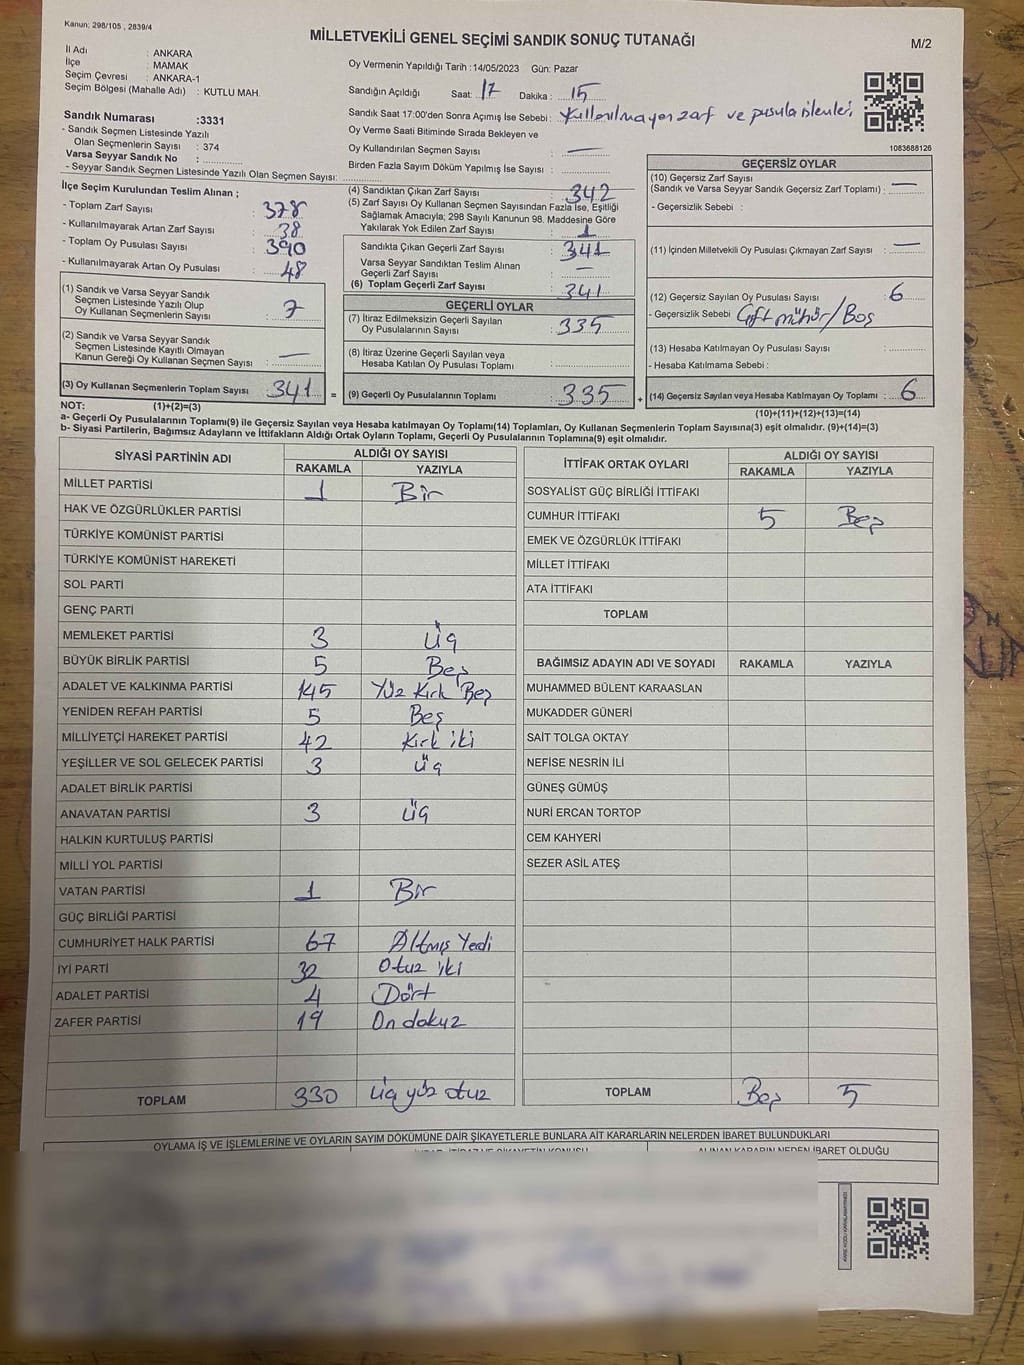 Kanun: 298/105 , 2839/4
MİLLETVEKİLİ GENEL SEÇİMİ SANDIK SONUÇ TUTANAĞI
M/2
İl Adı : ANKARA
İlçe : MAMAK
Seçim Çevresi : ANKARA-1
Seçim Bölgesi (Mahalle Adı) : KUTLU MAH.
Sandık Numarası :3331
- Sandık Seçmen Listesinde Yazılı
Olan Seçmenlerin Sayısı : 374
Varsa Seyyar Sandık No :
- Seyyar Sandık Seçmen Listesinde Yazılı Olan Seçmen Sayısı:
Oy Vermenin Yapıldığı Tarih :14/05/2023 Gün: Pazar
Sandığın Açıldığı Saat: 17 Dakika : 15
Sandık Saat 17:00'den Sonra Açımış İse Sebebi : Kullanılmayan zarf ve pusula işlemleri
Oy Verme Saati Bitiminde Sırada Bekleyen ve
Oy Kullandırılan Seçmen Sayısı : —
Birden Fazla Sayım Döküm Yapılmış İse Sayısı :
1083688126
İlçe Seçim Kurulundan Teslim Alınan ;
- Toplam Zarf Sayısı : 378
- Kullanılmayarak Artan Zarf Sayısı : 38
- Toplam Oy Pusulası Sayısı : 390
- Kullanılmayarak Artan Oy Pusulası : 48
(1) Sandık ve Varsa Seyyar Sandık
Seçmen Listesinde Yazılı Olup
Oy Kullanan Seçmenlerin Sayısı : 7
(2) Sandık ve Varsa Seyyar Sandık
Seçmen Listesinde Kayıtlı Olmayan
Kanun Gereği Oy Kullanan Seçmen Sayısı : —
(3) Oy Kullanan Seçmenlerin Toplam Sayısı : 341 =
(4) Sandıktan Çıkan Zarf Sayısı : 342
(5) Zarf Sayısı Oy Kullanan Seçmen Sayısından Fazla İse, Eşitliği
Sağlamak Amacıyla; 298 Sayılı Kanunun 98. Maddesine Göre
Yakılarak Yok Edilen Zarf Sayısı : 1
Sandıkta Çıkan Geçerli Zarf Sayısı : 341
Varsa Seyyar Sandıktan Teslim Alınan
Geçerli Zarf Sayısı : —
(6) Toplam Geçerli Zarf Sayısı : 341
GEÇERLİ OYLAR
(7) İtiraz Edilmeksizin Geçerli Sayılan
Oy Pusulalarının Sayısı : 335
(8) İtiraz Üzerine Geçerli Sayılan veya
Hesaba Katılan Oy Pusulası Toplamı :
(9) Geçerli Oy Pusulalarının Toplamı : 335 +
GEÇERSİZ OYLAR
(10) Geçersiz Zarf Sayısı
(Sandık ve Varsa Seyyar Sandık Geçersiz Zarf Toplamı) : —
- Geçersizlik Sebebi :
(11) İçinden Milletvekili Oy Pusulası Çıkmayan Zarf Sayısı : —
(12) Geçersiz Sayılan Oy Pusulası Sayısı : 6
- Geçersizlik Sebebi : Çift mühür/Boş
(13) Hesaba Katılmayan Oy Pusulası Sayısı :
- Hesaba Katılmama Sebebi :
(14) Geçersiz Sayılan veya Hesaba Katılmayan Oy Toplamı : 6
NOT: (1)+(2)=(3)
(10)+(11)+(12)+(13)=(14)
a- Geçerli Oy Pusulalarının Toplamı(9) ile Geçersiz Sayılan veya Hesaba katılmayan Oy Toplamı(14) Toplamları, Oy Kullanan Seçmenlerin Toplam Sayısına(3) eşit olmalıdır. (9)+(14)=(3)
b- Siyasi Partilerin, Bağımsız Adayların ve İttifakların Aldığı Ortak Oyların Toplamı, Geçerli Oy Pusulalarının Toplamına(9) eşit olmalıdır.
SİYASİ PARTİNİN ADI ALDIĞI OY SAYISI
RAKAMLA YAZIYLA
MİLLET PARTİSİ 1 Bir
HAK VE ÖZGÜRLÜKLER PARTİSİ
TÜRKİYE KOMÜNİST PARTİSİ
TÜRKİYE KOMÜNİST HAREKETİ
SOL PARTİ
GENÇ PARTİ
MEMLEKET PARTİSİ 3 Üç
BÜYÜK BİRLİK PARTİSİ 5 Beş
ADALET VE KALKINMA PARTİSİ 145 Yüz Kırk Beş
YENİDEN REFAH PARTİSİ 5 Beş
MİLLİYETÇİ HAREKET PARTİSİ 42 Kırk iki
YEŞİLLER VE SOL GELECEK PARTİSİ 3 Üç
ADALET BİRLİK PARTİSİ
ANAVATAN PARTİSİ 3 Üç
HALKIN KURTULUŞ PARTİSİ
MİLLİ YOL PARTİSİ
VATAN PARTİSİ 1 Bir
GÜÇ BİRLİĞİ PARTİSİ
CUMHURİYET HALK PARTİSİ 67 Altmış Yedi
İYİ PARTİ 32 Otuz iki
ADALET PARTİSİ 4 Dört
ZAFER PARTİSİ 19 On dokuz
TOPLAM 330 Üç yüz otuz
İTTİFAK ORTAK OYLARI ALDIĞI OY SAYISI
RAKAMLA YAZIYLA
SOSYALİST GÜÇ BİRLİĞİ İTTİFAKI
CUMHUR İTTİFAKI 5 Beş
EMEK VE ÖZGÜRLÜK İTTİFAKI
MİLLET İTTİFAKI
ATA İTTİFAKI
TOPLAM
BAĞIMSIZ ADAYIN ADI VE SOYADI RAKAMLA YAZIYLA
MUHAMMED BÜLENT KARAASLAN
MUKADDER GÜNERİ
SAİT TOLGA OKTAY
NEFİSE NESRİN İLİ
GÜNEŞ GÜMÜŞ
NURİ ERCAN TORTOP
CEM KAHYERİ
SEZER ASİL ATEŞ
TOPLAM Beş 5
OYLAMA İŞ VE İŞLEMLERİNE VE OYLARIN SAYIM DÖKÜMÜNE DAİR ŞİKAYETLERLE BUNLARA AİT KARARLARIN NELERDEN İBARET BULUNDUKLARI
ALINAN KARARIN NEDEN İBARET OLDUĞU